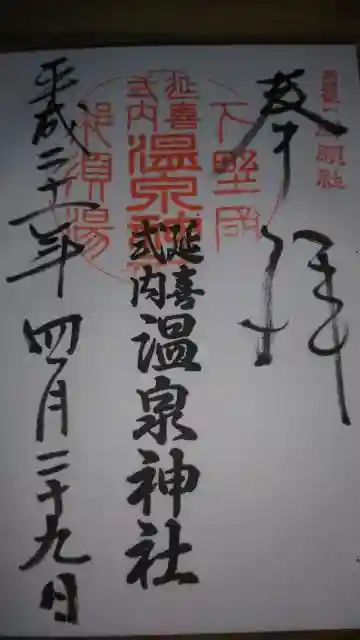 奉拝
下野國
延喜
式内
温泉神社
那須湯
延喜
式内
温泉神社
平成二十一年四月二十九日